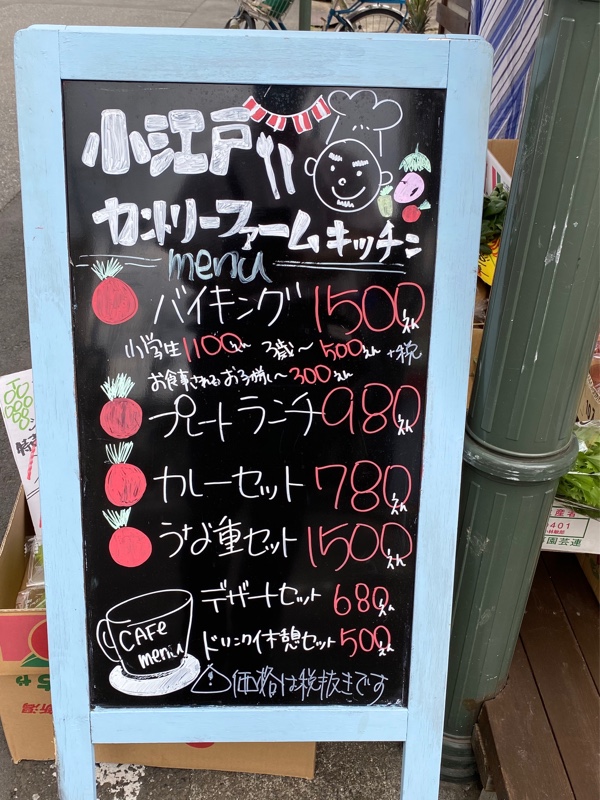 小江戸
カントリーファームキッチン
menu
バイキング 1500えん
小学生 1100えん 3歳〜 500えん +税
お食事されるお子様し〜300えん
プレートランチ 980えん
カレーセット 780えん
うな重セット 1500えん
デザートセット 680えん
ドリンク休憩セット 500えん
CAFe
menu
⚠価格は税抜きです
0401
園芸連
新潟